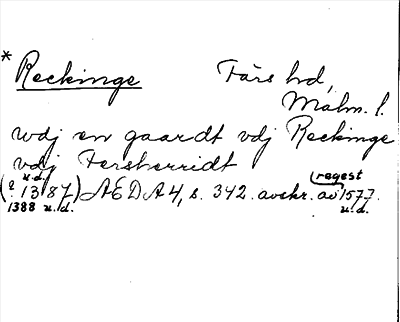 * Reckinge Färs hd,
Malm. l.
udj en gaardt udj Reckinge
udj Fersherridt
u.d. regest
(? 1387) AEDA 4, s. 342. avskr. av 1577.
1388 u.d. u.d.